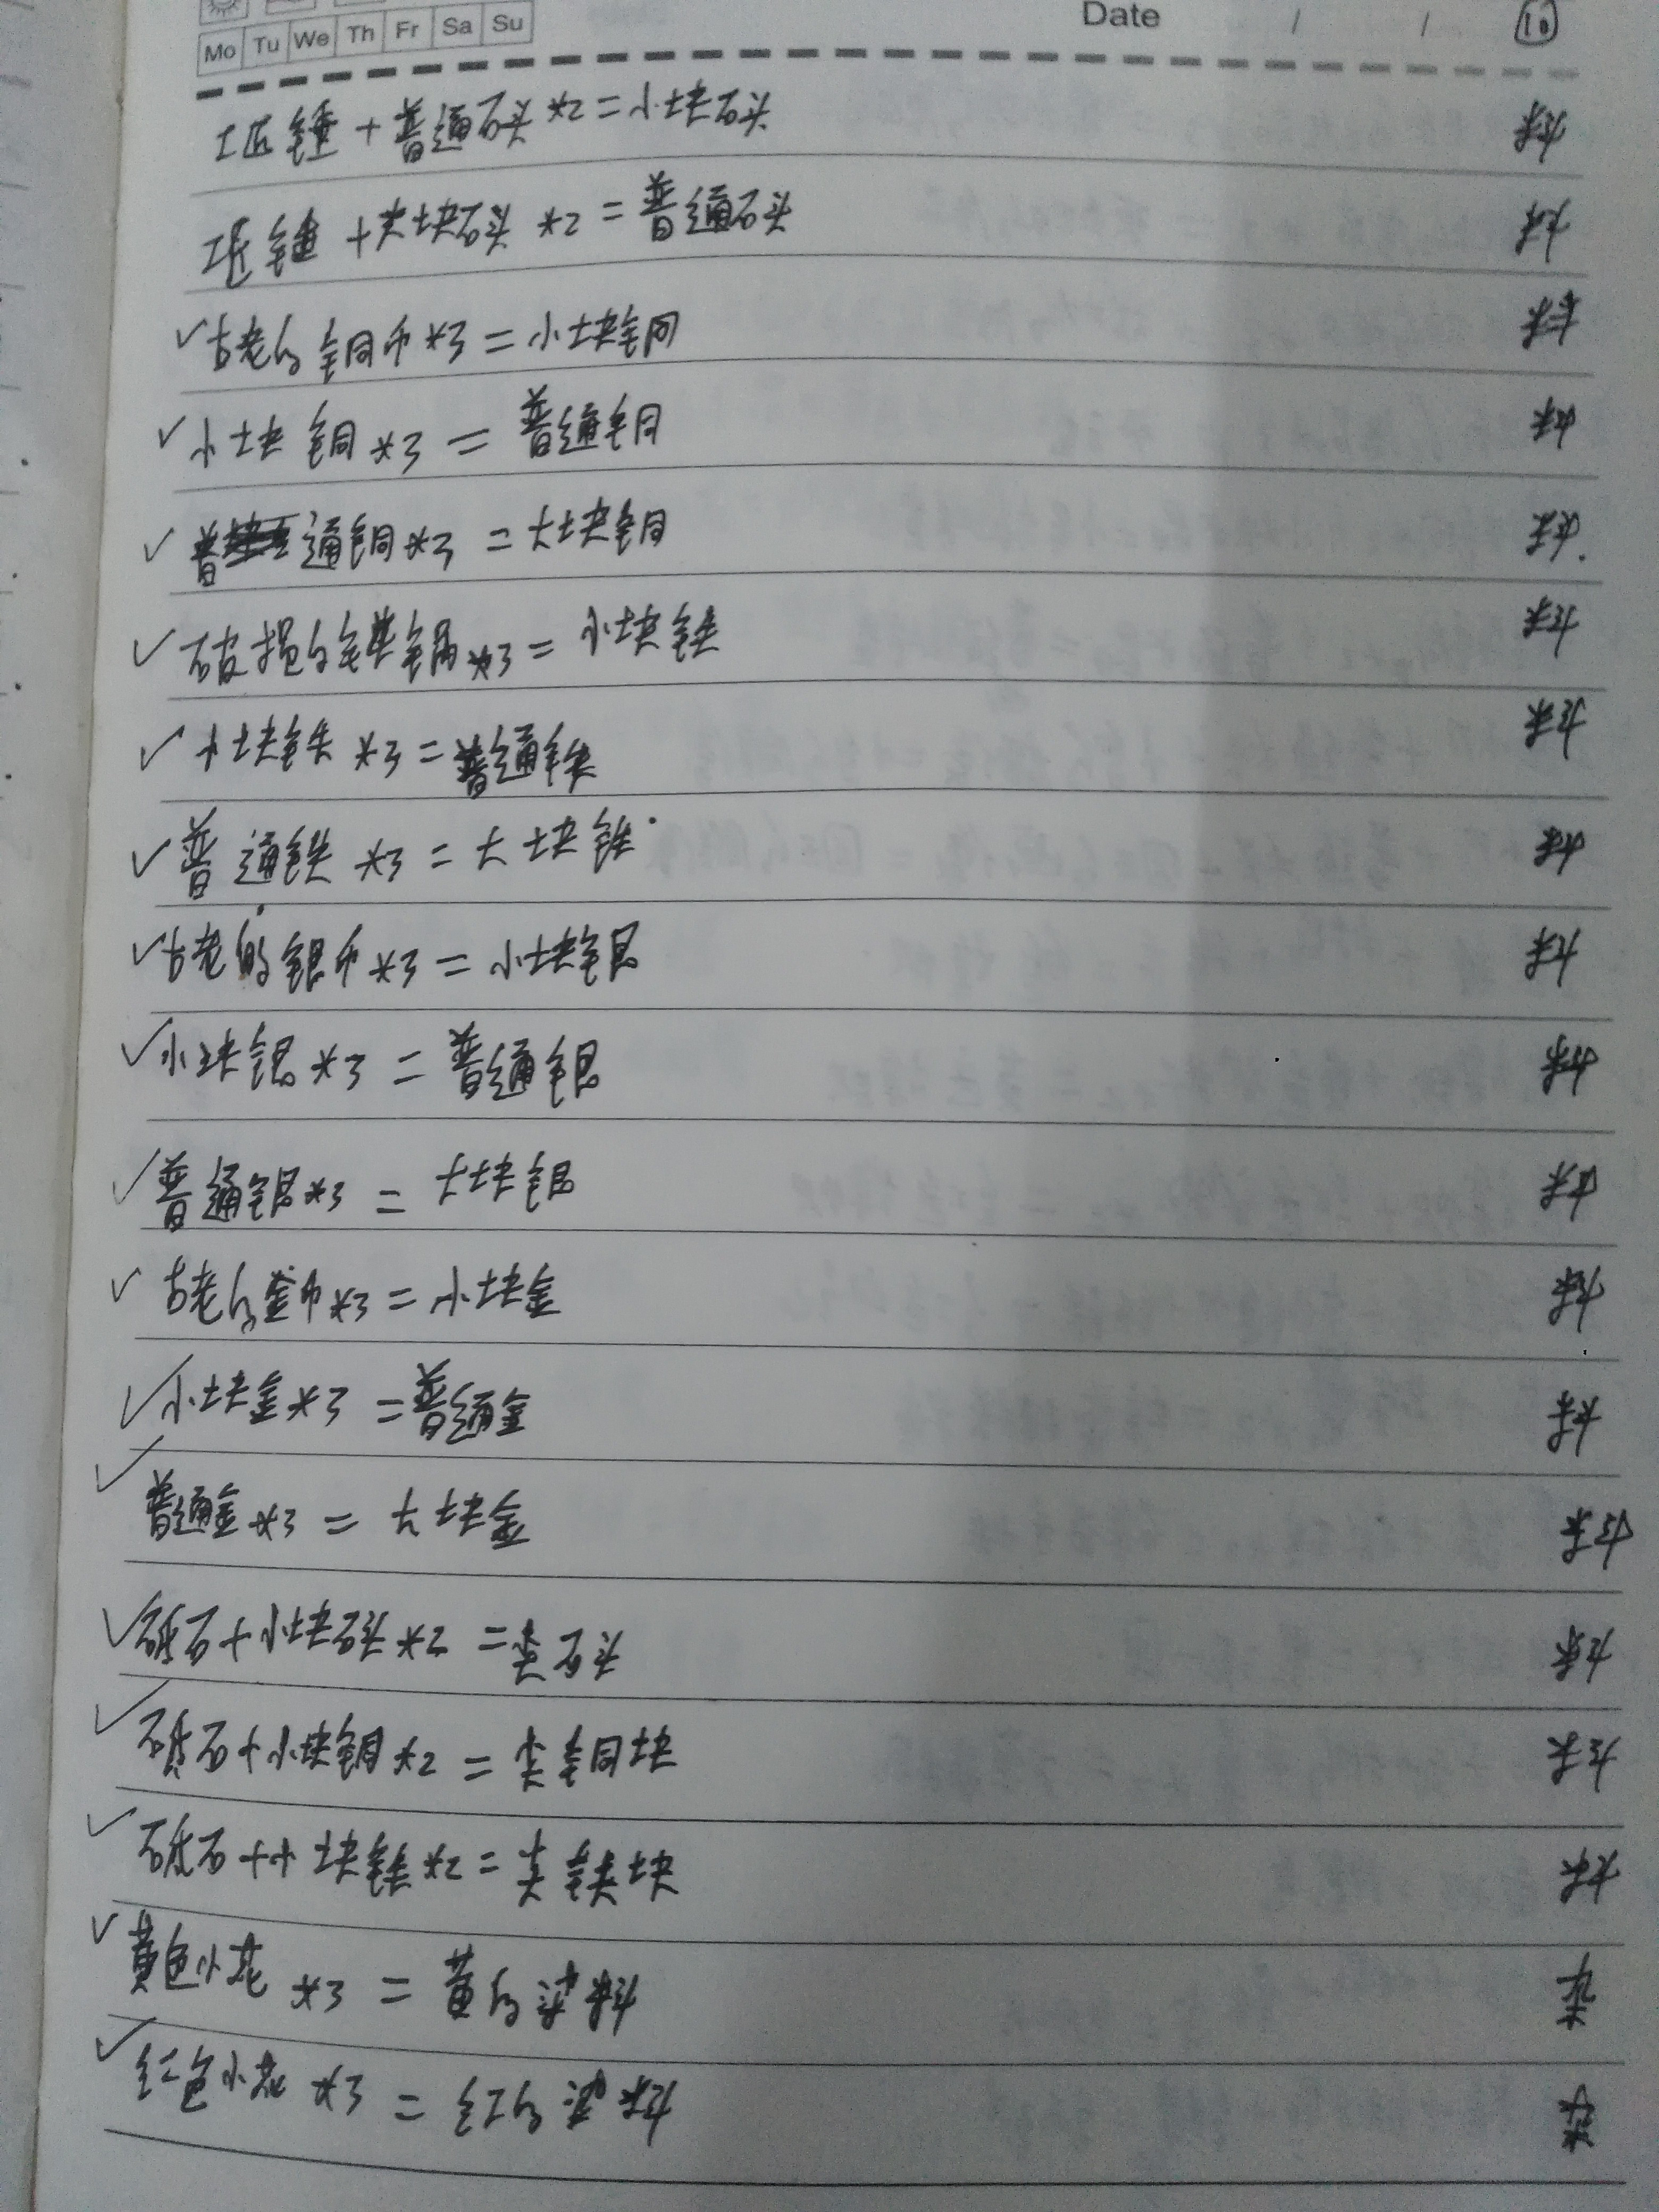 Mo Tu We Th Fr Sa Su
Date / / 10
工匠锤+普通石头*2=小块石头 料
工匠锤+大块石头*2=普通石头 料
✓古老的铜币*3=小块铜 料
✓小块铜*3=普通铜 料
✓普通铜*3=大块铜 料.
✓破损的铁锅*3=小块铁 料
✓小块铁*3=普通铁 料
✓普通铁*3=大块铁 料
✓古老的银币*3=小块银 料
✓小块银*3=普通银 料
✓普通银*3=大块银 料
✓古老的金币*3=小块金 料
✓小块金*3=普通金 料
✓普通金*3=大块金 料
✓砥石+小块石头*2=尖石头 料
✓砥石+小块铜*2=尖铜块 料
✓砥石+小块铁*2=尖铁块 料
✓黄色小花*3=黄的染料
✓红色小花*3=红的染料